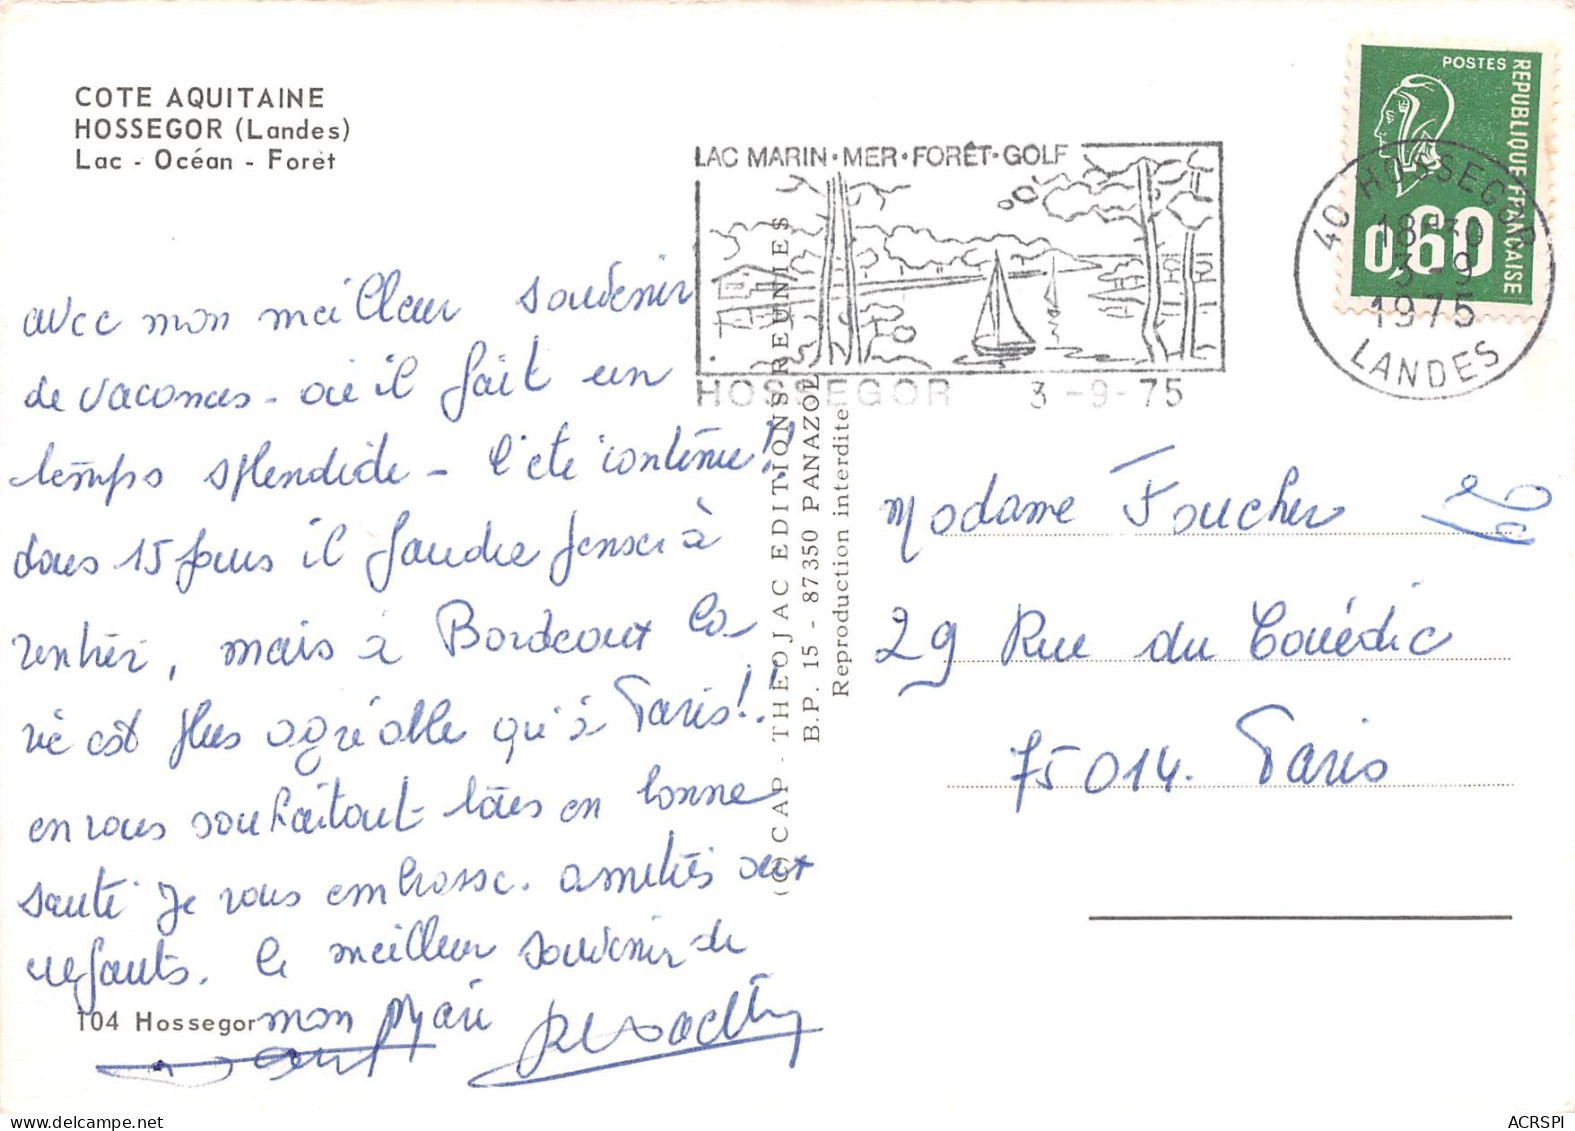 COTE AQUITAINE
HOSSEGOR (Landes)
Lac - Océan - Forêt
avec mon meilleur souvenir
de vacances - où il fait un
temps splendide - l'été continue!!
dans 15 jours il faudra penser à
rentrer, mais à Bordeaux la
vie est plus agréable qu'à Paris!!
en vous souhaitant tous en bonne
santé je vous embrasse. amitiés aux
enfants. le meilleur souvenir de
mon Mari
104 Hossegor
(C) CAP - THEOJAC EDITIONS REUNIES
B.P. 15 - 87350 PANAZOL
Reproduction interdite
LAC MARIN·MER·FORÊT·GOLF
HOSSEGOR 3-9-75
POSTES
REPUBLIQUE FRANCAISE
0,60
40 HOSSEGOR
18H30
3-9
1975
LANDES
Madame Foucher
29 Rue du Couédic
75014. Paris
ACRSPI